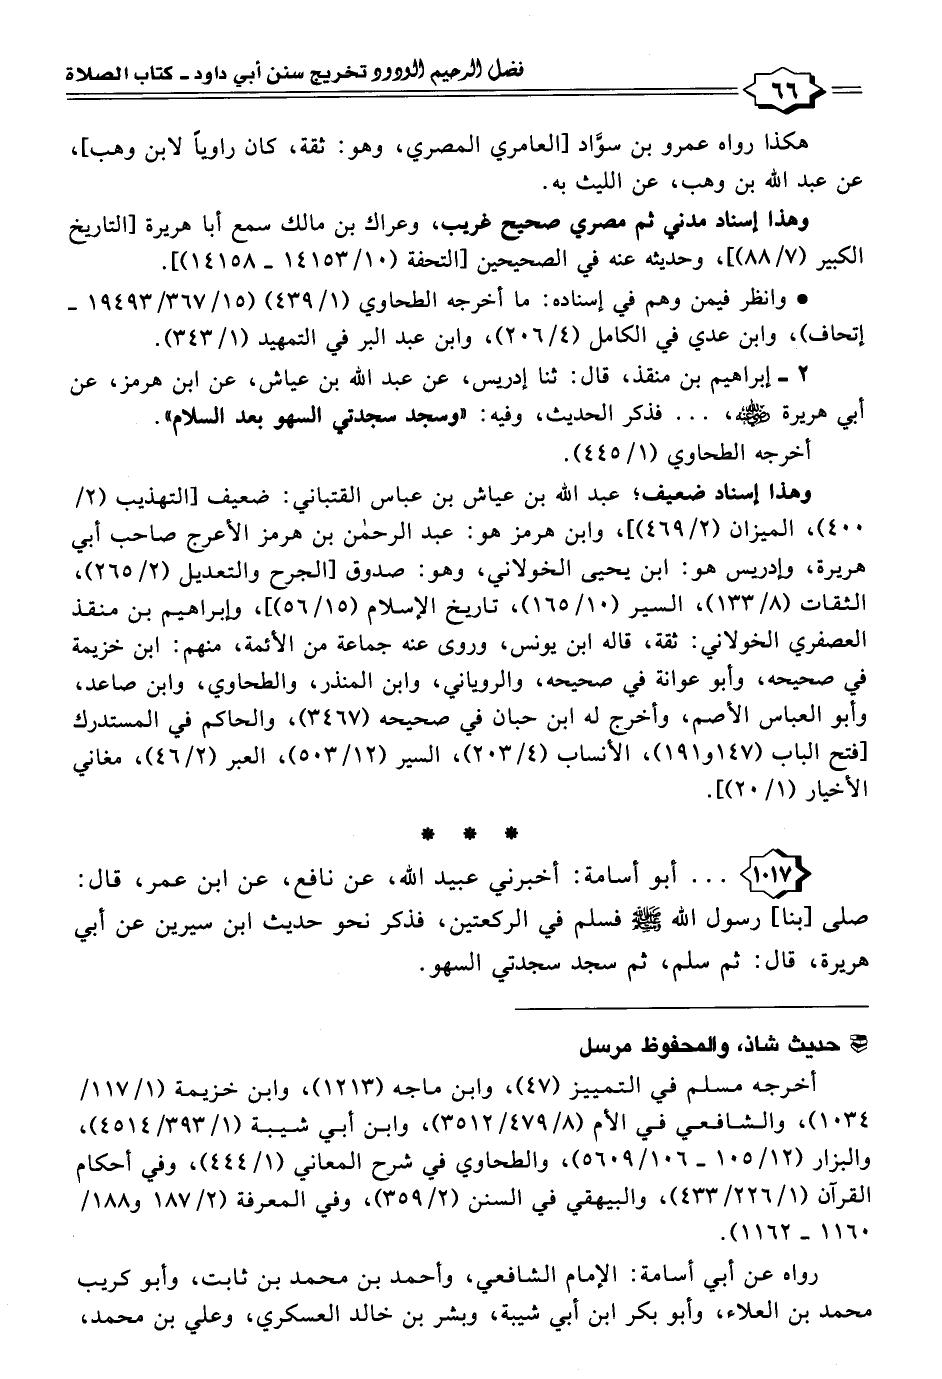 فضل الرحيم الودود تخريج سنن أبي داود ـ كتاب الصلاة
٦٦
هكذا رواه عمرو بن سوَّاد [العامري المصري، وهو: ثقة، كان راوياً لابن وهب]،
عن عبد الله بن وهب، عن الليث به.
وهذا إسناد مدني ثم مصري صحيح غريب، وعراك بن مالك سمع أبا هريرة [التاريخ
الكبير (٨٨/٧)]، وحديثه عنه في الصحيحين [التحفة (١٤١٥٣/١٠ ـ ١٤١٥٨)].
• وانظر فيمن وهم في إسناده: ما أخرجه الطحاوي (٤٣٩/١) (١٩٤٩٣/٣٦٧/١٥ ـ
إتحاف)، وابن عدي في الكامل (٢٠٦/٤)، وابن عبد البر في التمهيد (٣٤٣/١).
٢ ـ إبراهيم بن منقذ، قال: ثنا إدريس، عن عبد الله بن عياش، عن ابن هرمز، عن
أبي هريرة رضي الله عنه، ... فذكر الحديث، وفيه: «وسجد سجدتي السهو بعد السلام».
أخرجه الطحاوي (٤٤٥/١).
وهذا إسناد ضعيف؛ عبد الله بن عياش بن عباس القتباني: ضعيف [التهذيب (٢/
٤٠٠)، الميزان (٤٦٩/٢)]، وابن هرمز هو: عبد الرحمٰن بن هرمز الأعرج صاحب أبي
هريرة، وإدريس هو: ابن يحيى الخولاني، وهو: صدوق [الجرح والتعديل (٢٦٥/٢)،
الثقات (١٣٣/٨)، السير (١٦٥/١٠)، تاريخ الإسلام (٥٦/١٥)]، وإبراهيم بن منقذ
العصفري الخولاني: ثقة، قاله ابن يونس، وروى عنه جماعة من الأئمة، منهم: ابن خزيمة
في صحيحه، وأبو عوانة في صحيحه، والروياني، وابن المنذر، والطحاوي، وابن صاعد،
وأبو العباس الأصم، وأخرج له ابن حبان في صحيحه (٣٤٦٧)، والحاكم في المستدرك
[فتح الباب (١٤٧و١٩١)، الأنساب (٢٠٣/٤)، السير (٥٠٣/١٢)، العبر (٤٦/٢)، مغاني
الأخيار (٢٠/١)].
* * *
١٠١٧ ... أبو أسامة: أخبرني عبيد الله، عن نافع، عن ابن عمر، قال:
صلى [بنا] رسول الله ﷺ فسلم في الركعتين، فذكر نحو حديث ابن سيرين عن أبي
هريرة، قال: ثم سلم، ثم سجد سجدتي السهو.
حديث شاذ، والمحفوظ مرسل
أخرجه مسلم في التمييز (٤٧)، وابن ماجه (١٢١٣)، وابن خزيمة (١١٧/١/
١٠٣٤)، والشافعي في الأم (٣٥١٢/٤٧٩/٨)، وابن أبي شيبة (٤٥١٤/٣٩٣/١)،
والبزار (١٠٥/١٢ ـ ٥٦٠٩/١٠٦)، والطحاوي في شرح المعاني (٤٤٤/١)، وفي أحكام
القرآن (٤٣٣/٢٢٦/١)، والبيهقي في السنن (٣٥٩/٢)، وفي المعرفة (١٨٧/٢ و١٨٨/
١١٦٠ ـ ١١٦٢).
رواه عن أبي أسامة: الإمام الشافعي، وأحمد بن محمد بن ثابت، وأبو كريب
محمد بن العلاء، وأبو بكر ابن أبي شيبة، وبشر بن خالد العسكري، وعلي بن محمد،